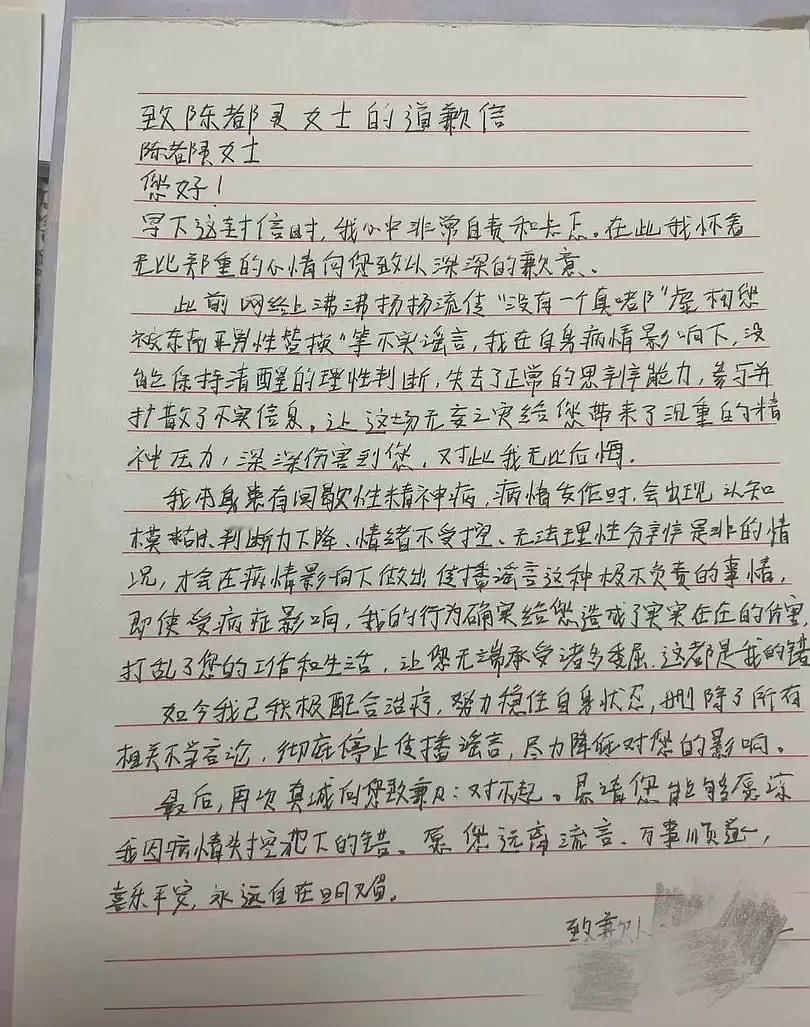 致陈都灵女士的道歉信
陈都灵女士
您好！
写下这封信时，我心中非常自责和忐忑。在此我怀着
无比郑重的心情向您致以深深的歉意。
此前网络上沸沸扬扬流传“没有一个真嘟都”虚构您
被东南亚男性替换”等不实谣言，我在自身病情影响下，没
能保持清醒的理性判断，失去了正常的思辨能力，参与并
扩散了不实信息。让这场无妄之灾给您带来了沉重的精
神压力，深深伤害到您，对此我无比后悔。
我本身患有间歇性精神病，病情发作时，会出现认知
模糊、判断力下降、情绪不受控、无法理性分辨是非的情
况，才会在病情影响下做出传播谣言这种极不负责的事情，
即使受病症影响，我的行为确实给您造成了实实在在的伤害，
打乱了您的工作和生活，让您无端承受诸多委屈，这都是我的错
如今我已积极配合治疗，努力稳住自身状态，删除了所有
相关不当言论，彻底停止传播谣言，尽力降低对您的影响。
最后，再次真诚向您致歉：对不起。恳请您能够原谅
我因病情失控犯下的错。愿您远离流言、万事顺遂，
喜乐平安，永远自在明媚。
致歉人